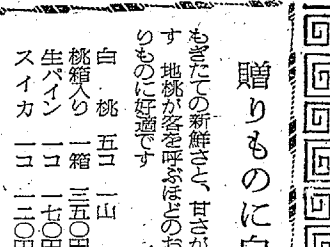 贈りものに白
もぎたての新鮮さと、甘さが
す 地桃が客を呼ぶほどのお
りものに好適です
白桃 五コ 一山
桃箱入り 一箱 三五〇円
生パイン 一コ 一七〇円
スイカ 一コ 一二〇円